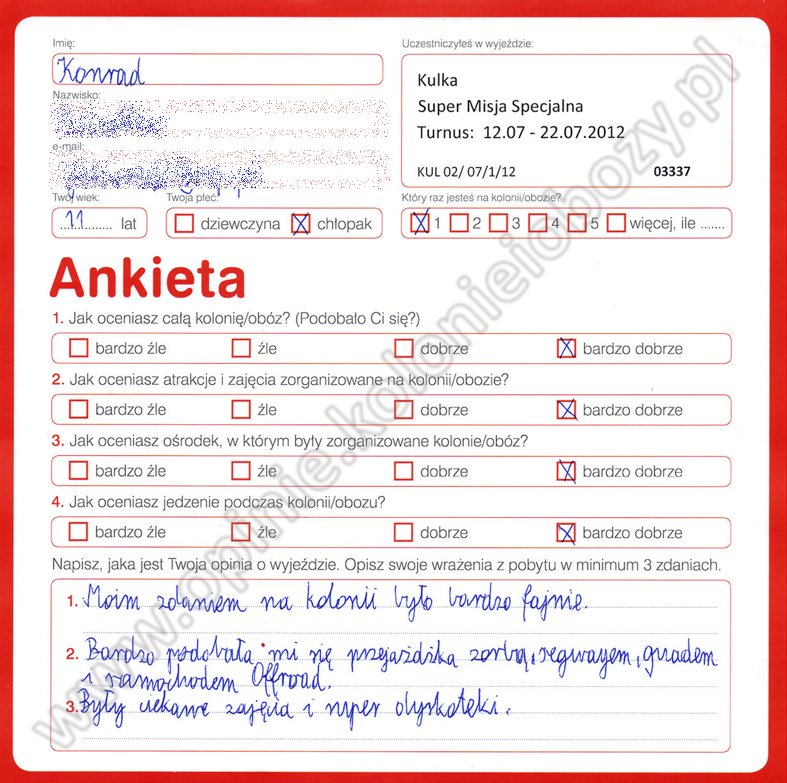 Imię:
Konrad
Nazwisko:
e-mail:
Twój wiek:
11 lat
Twoja płeć:
dziewczyna chłopak
Uczestniczyłeś w wyjeździe:
Kulka
Super Misja Specjalna
Turnus: 12.07 - 22.07.2012
KUL 02/ 07/1/12 03337
Który raz jesteś na kolonii/obozie?
1 2 3 4 5 więcej, ile .......
Ankieta
1. Jak oceniasz całą kolonię/obóz? (Podobało Ci się?)
bardzo źle źle dobrze bardzo dobrze
2. Jak oceniasz atrakcje i zajęcia zorganizowane na kolonii/obozie?
bardzo źle źle dobrze bardzo dobrze
3. Jak oceniasz ośrodek, w którym były zorganizowane kolonie/obóz?
bardzo źle źle dobrze bardzo dobrze
4. Jak oceniasz jedzenie podczas kolonii/obozu?
bardzo źle źle dobrze bardzo dobrze
Napisz, jaka jest Twoja opinia o wyjeździe. Opisz swoje wrażenia z pobytu w minimum 3 zdaniach.
1. Moim zdaniem na kolonii było bardzo fajnie.
2. Bardzo podobała mi się przejażdżka zorbą, segwayem, quadem
i samochodem Offroad.
3. Były ciekawe zajęcia i super dyskoteki.
www.opinie.kolonieiobozy.pl